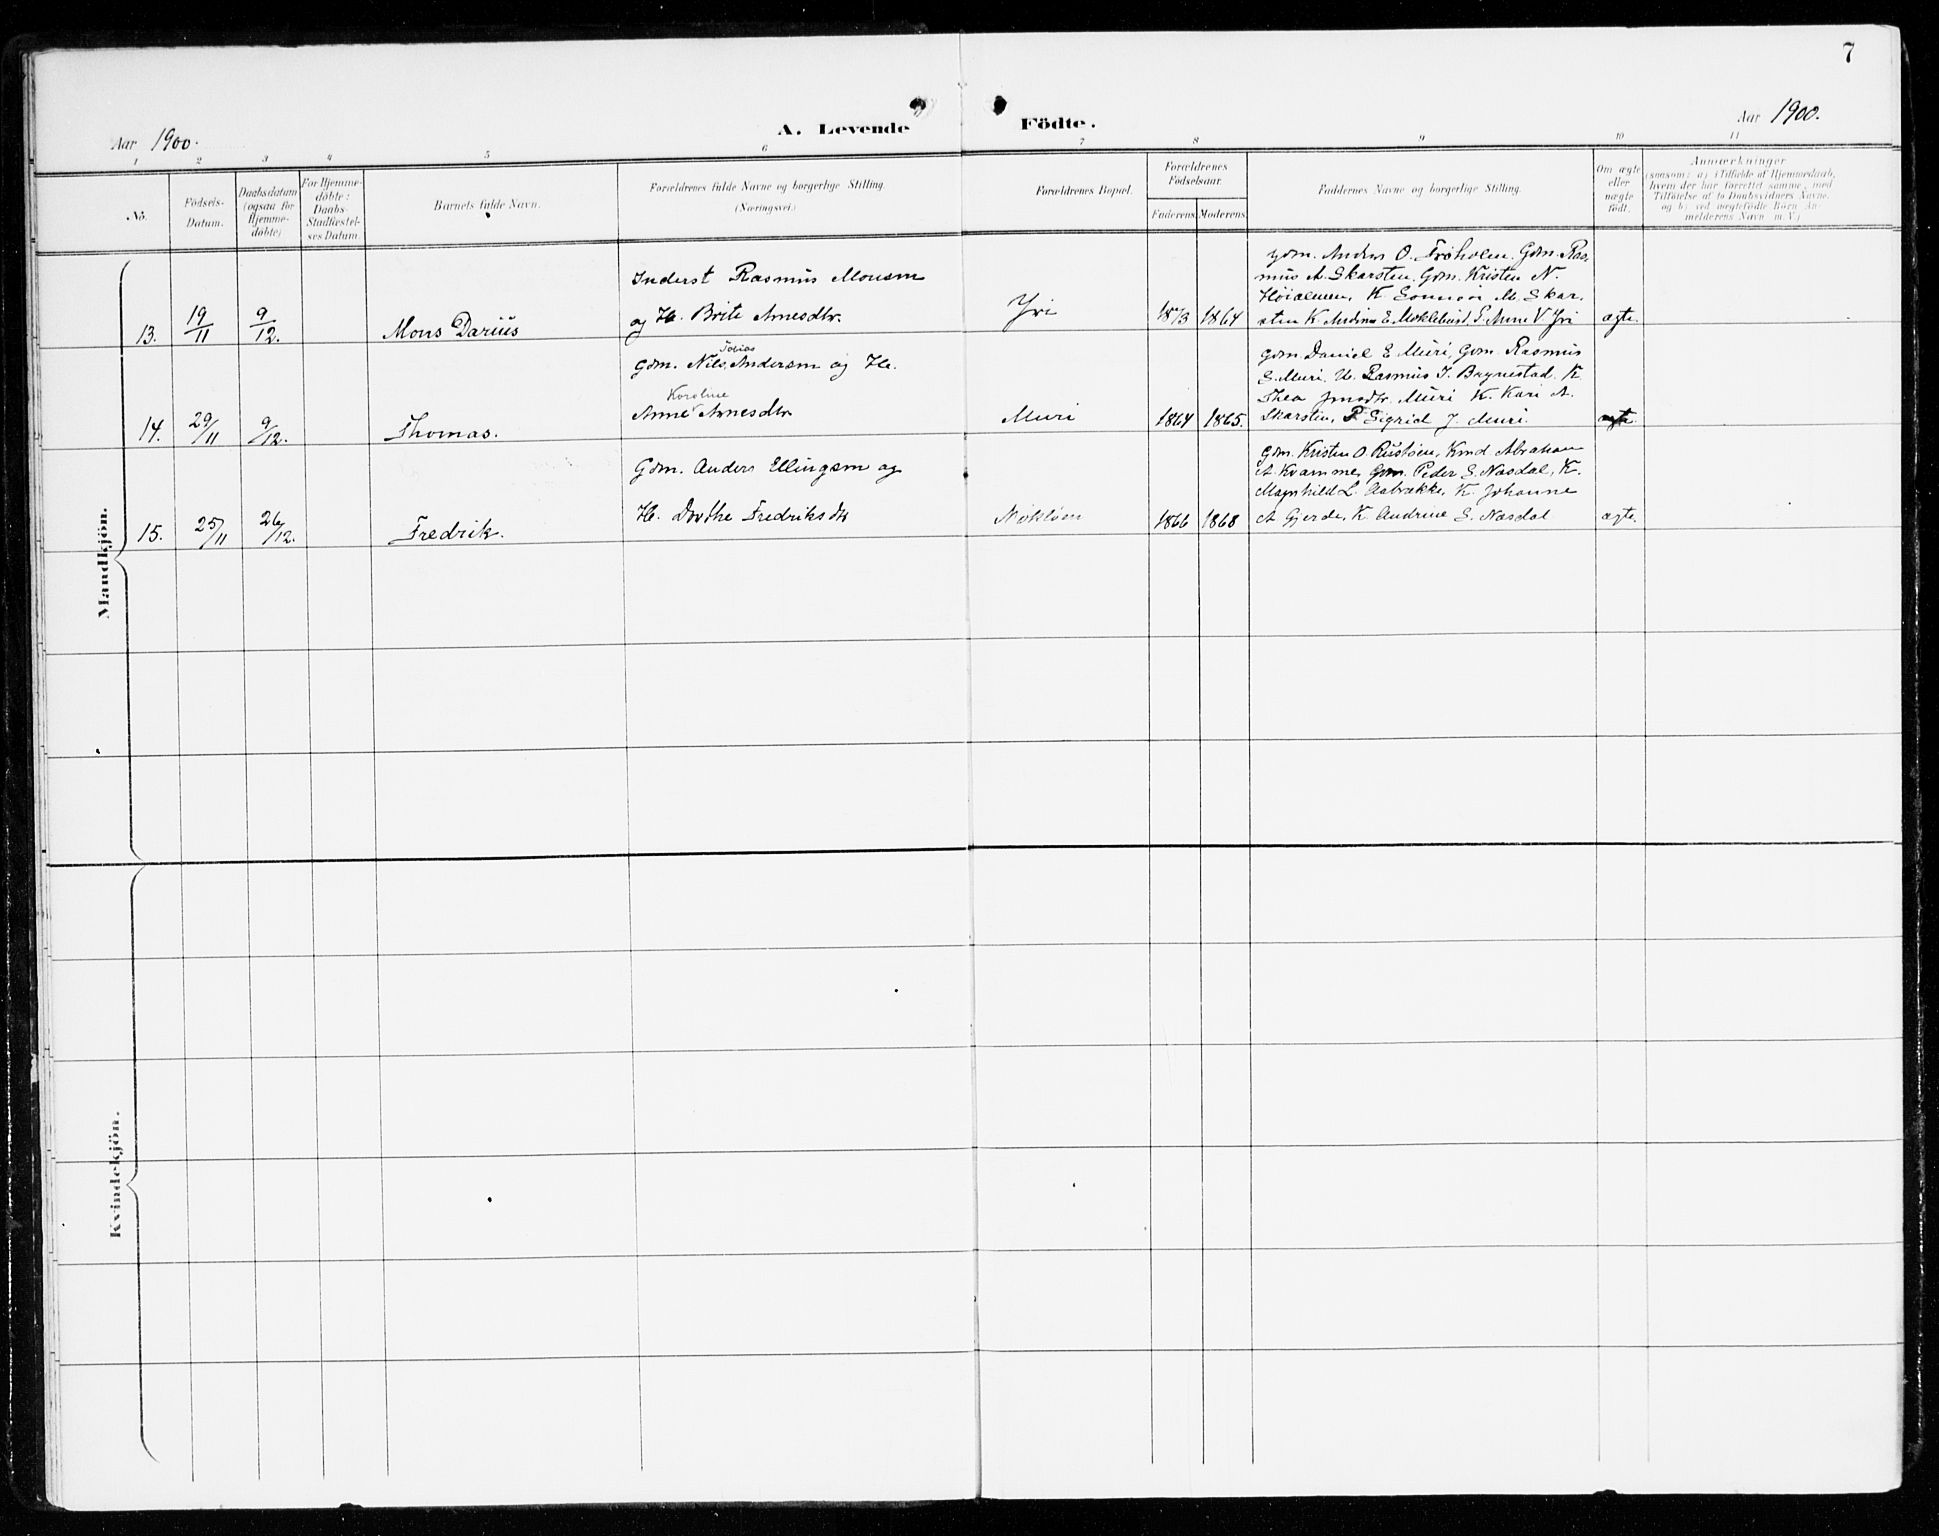 7
Aar 1900.
A. Levende Födte.
Aar 1900.
1 2 3 4 5 6 7 8 9 10 11
No.
Födsels-
Datum.
Daabsdatum
(ogsaa for
Hjemme-
döbte)
For Hjemme-
döbte:
Daabs-
Stadfæstel-
ses Datum.
Barnets fulde Navn.
Forældrenes fulde Navne og borgerlige Stilling.
(Næringsvei.)
Forældrenes Bopæl.
Forældrenes
Födselsaar.
Faderens. Moderens.
Faddernes Navne og borgerlige Stilling.
Om ægte
eller
uægte
födt.
Anmærkninger
(saasom: a) i Tilfælde af Hjemmedaab,
hvem der har forrettet samme, med
Tilföielse af to Daabsvidners Navne.
og b) ved uægtefödte Börn An-
melderens Navn m.V.)
Mandkjön.
13.
19/11
9/12.
Mons Darius
Inderst Rasmus Monsen
og H. Brite Arnesdtr.
Yri
1873 1864
Gdm. Anders O. Frøholen, Gdm. Ras-
mus A. Skarsten, Gdm. Kristen N.
K. M. Skar-
sten K. E. Myklebust P. Anne V. Yri
ægte.
14.
29/11
9/12.
Thomas.
Gdm. Nils Tobias Andersen og H.
Anne Karoline Arnesdtr
Muri
1864 1865.
Gdm. Daniel E. Muri, Gdm. Rasmus
E. Muri, U. Rasmus J. Brynestad, K.
Thea Jonsdtr. Muri K. Kari A.
Skarsten, P. Sigrid J. Muri.
ægte.
15.
25/11
26/12.
Fredrik.
Gdm. Anders Ellingsen og
H. Dorthe Fredriksdtr
Nøkløen
1866 1868
Gdm. Kristen O. Rustøen, Kmd. Abraham
A. Kvamme, Gdm. Peder E. Næsdal, K.
Magnhild L. Aabrække, K. Johanne
A. Gjerde, K. Andrine E. Næsdal
ægte.
Kvindekjön.